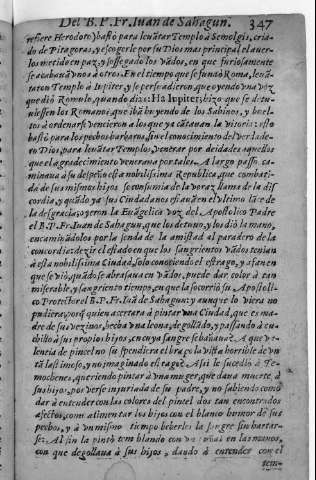 Del B. P. Fr. Iuan de Sahagun. 347
refiere Herodoto) bastò para leuãtar Templo à Semolgis, cria
do de Pitagoras, y escogerle por su Dios mas principal el auer
los metido en paz, y sossegado los vãdos, en que furiosamente
se acabauã vnos à otros. En el tiempo que se fundò Roma, leuã
taron Templo à Iupiter, y se persuadieron, que oyendo vna voz
que diò Romulo, quando dixo: Ha Iupiter; hizo que se detu-
uiessen los Romanos, que ibã huyendo de los Sabinos, y buel-
tos à ordenarse vencieron à los que ya cãtauan la vitoria: esto
bastò para los pechos barbaros, sin el conocimiento del verdade-
ro Dios, para leuãtar Templos, y venerar por deidades aquellos
que el agradecimiento venerana por tales. A largo passo, ca-
minaua à su despeño esta nobilissima Republica, que combati-
da de sus mismos hijos se consumia de la voraz llama de la dis
cordia, y quãdo ya sus Ciudadanos estauã en el vltimo lãce de
la desgracia, oyeron la Euãgelica voz del Apostolico Padre
el B. P. Fr. Iuan de Sahagun, que los detuuo, y los diò la mano,
encaminãdolos por la senda de la amistad al paradero de la
concordia: dezir el estado en que los sangrientos vãdos tenian
à esta nobilissima Ciudad, solo conociendo el estrago, y afan en
que se viò, quãdo se abrasaua en vãdos, puede dar color à tan
miserable, y sangriento tiempo, en que la socorriò su Apostoli-
co Protector el B. P. Fr. Iuã de Sahagun: y aunque lo viera no
pudiera, por quien acertara à pintar vna Ciudad, que es ma-
dre de sus vezinos, hecha vna leona, degollãdo, y passando à cu-
chillo à sus propios hijos, en cuya sangre se bañaua? A que va-
lencia de pincel no suspendiera el braço la vista horrible de vn
tã lastimoso, y no imaginado estrago? Assi le sucediò à Te-
mochenes, queriendo pintar à vna muger, que daua muerte à
sus hijos, por verse injuriada de su padre, y no sabiendo como
dar à entender con las colores del pincel dos tan encontrados
afectos, como alimentar los hijos con el blanco humor de sus
pechos, y à vn mismo tiempo beberles la sangre sin hartar-
se: Al fin la pintò tem blando con vn en las manos,
con que degollaua à sus hijos, dando à entender con el
tem-